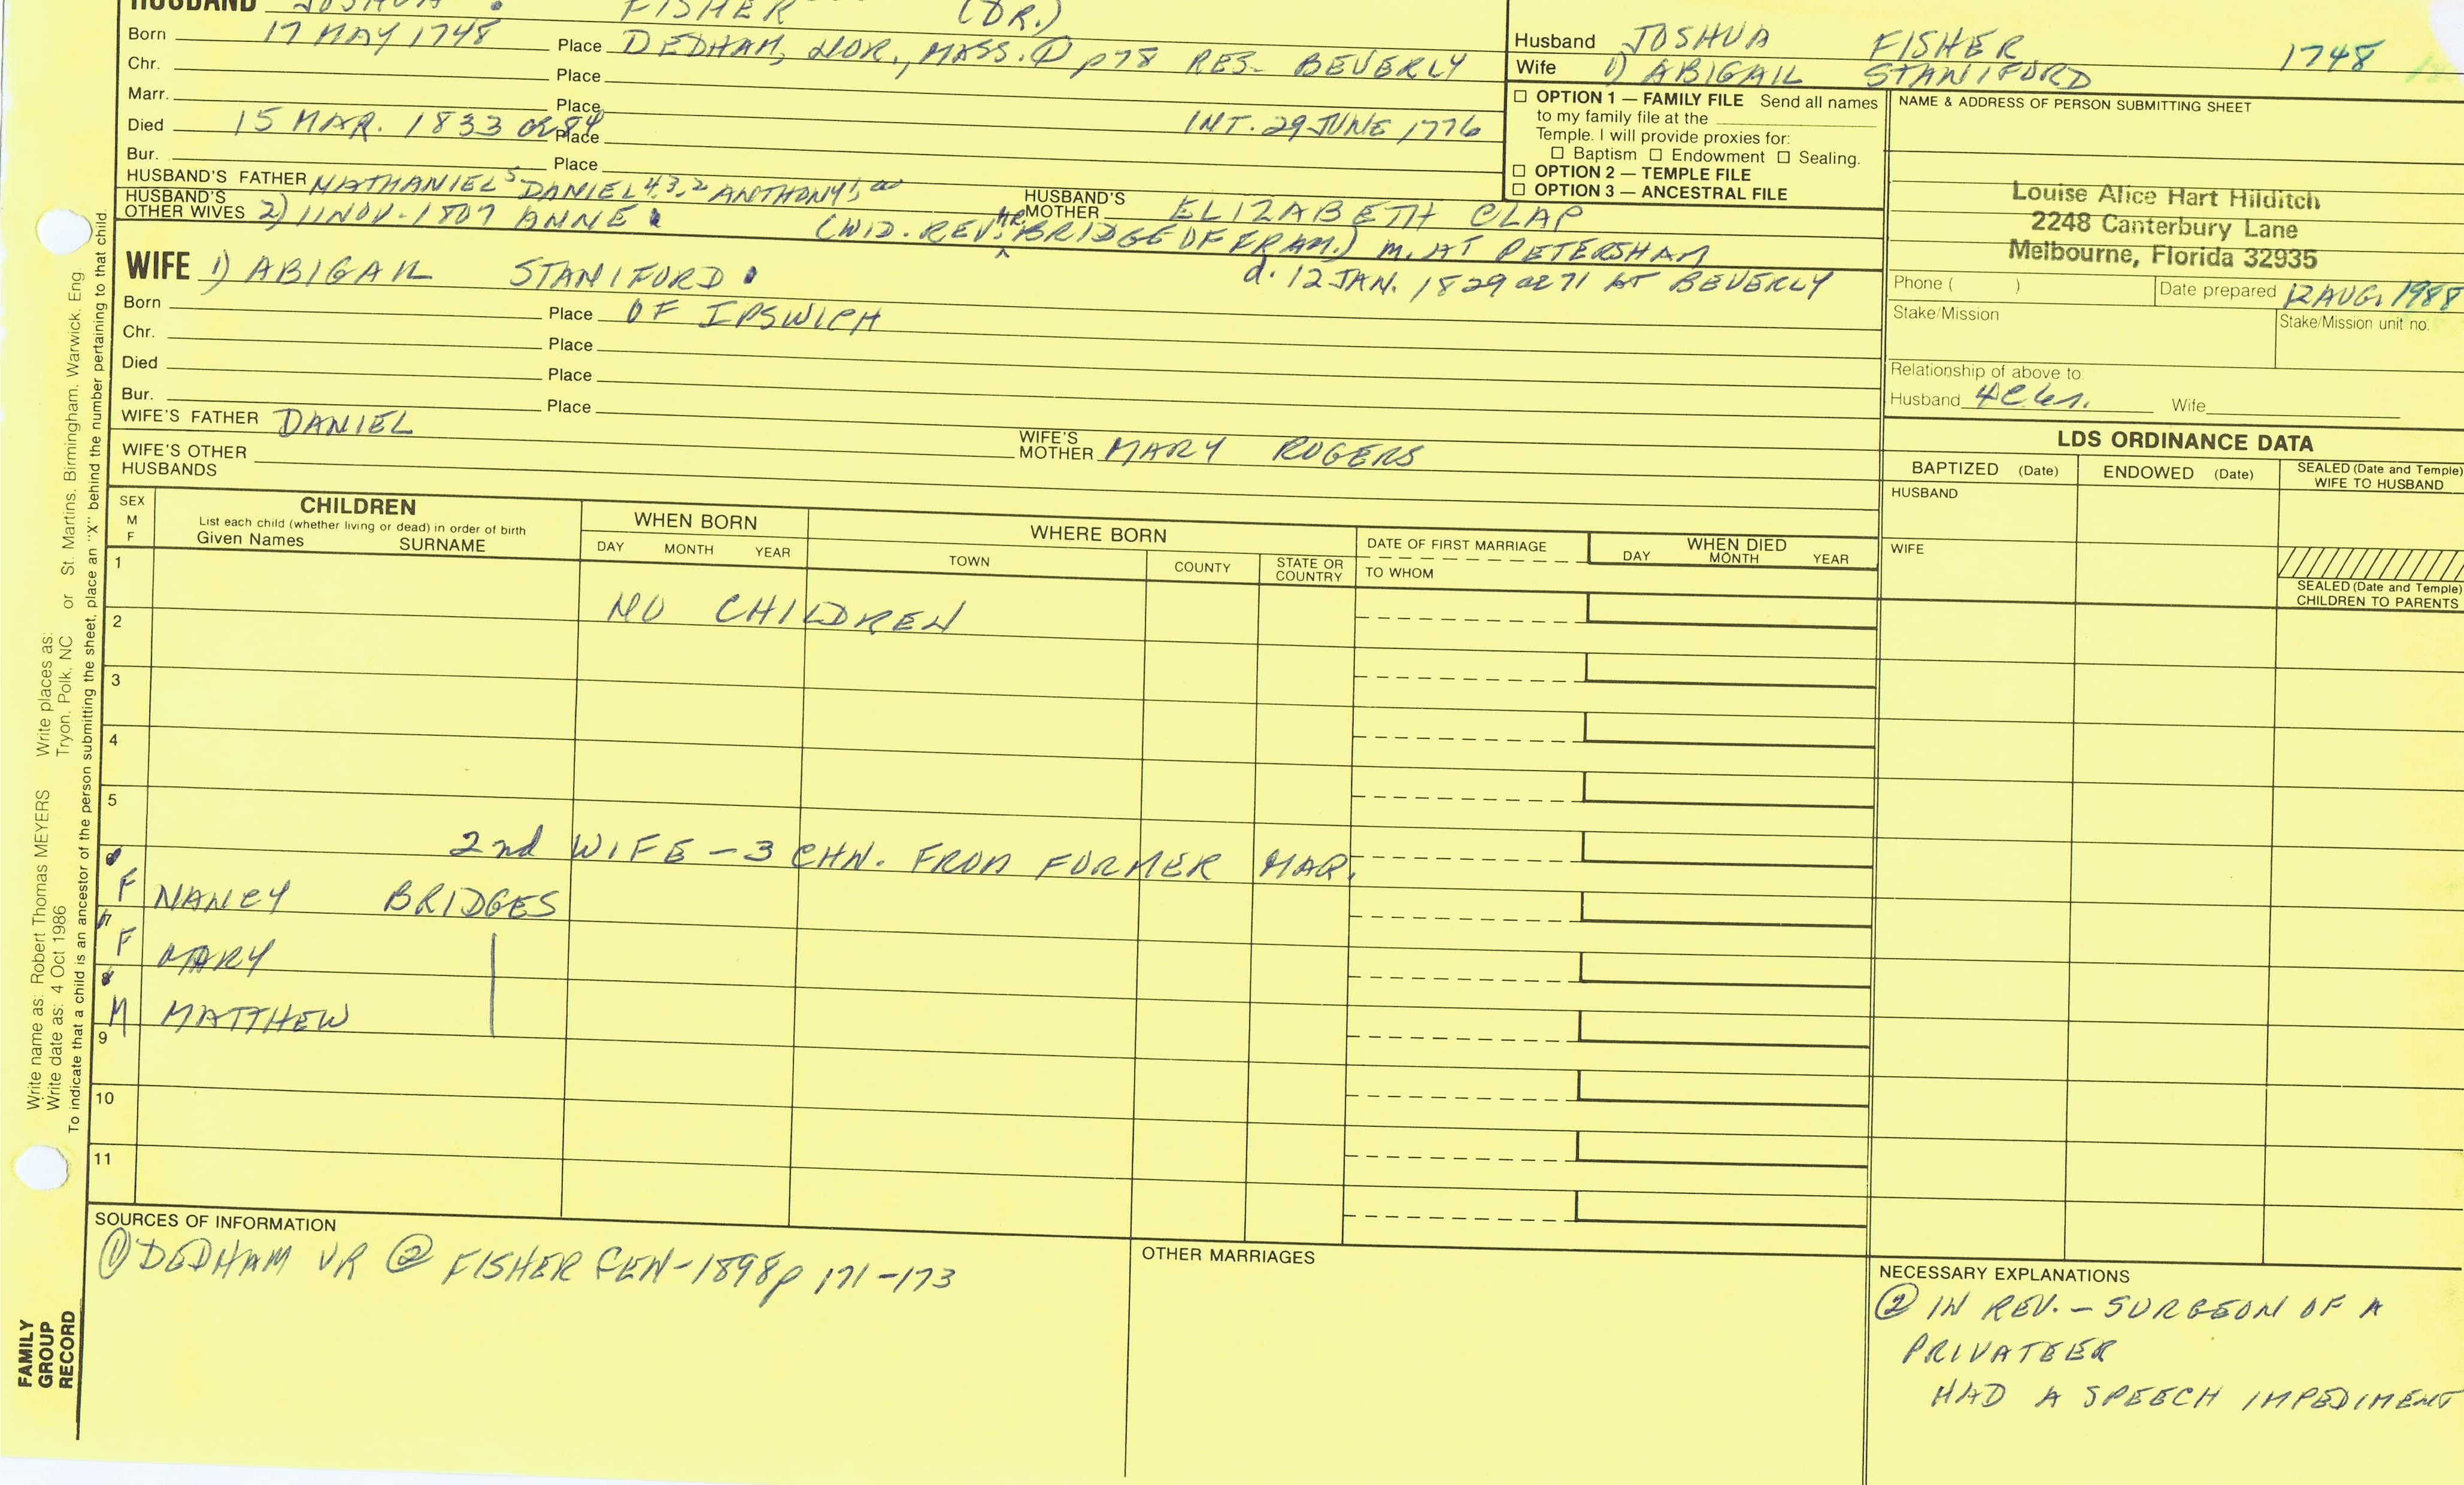 HUSBAND JOSHUA FISHER (DR.)
Born 17 MAY 1748 Place DEDHAM, NOR., MASS. ① p78 RES- BEVERLY
Chr. Place
Marr. Place INT. 29 JUNE 1776
Died 15 MAR. 1833 OR 84 Place
Bur. Place
HUSBAND'S FATHER NATHANIEL5 DANIEL4,3,2 ANTHONY1, HUSBAND'S MOTHER ELIZABETH CLAP
HUSBAND'S OTHER WIVES 2) 11 NOV-1807 ANNE (WID. REV. MR. BRIDGE OF FRAM.) M. AT PETERSHAM
d. 12 JAN. 1829 AE 71 AT BEVERLY
WIFE 1) ABIGAIL STANIFORD
Born Place OF IPSWICH
Chr. Place
Died Place
Bur. Place
WIFE'S FATHER DANIEL WIFE'S MOTHER MARY ROGERS
WIFE'S OTHER HUSBANDS
Husband JOSHUA FISHER 1748
Wife 1) ABIGAIL STANIFORD
☐ OPTION 1 — FAMILY FILE Send all names
to my family file at the
Temple. I will provide proxies for:
☐ Baptism ☐ Endowment ☐ Sealing.
☐ OPTION 2 — TEMPLE FILE
☐ OPTION 3 — ANCESTRAL FILE
NAME & ADDRESS OF PERSON SUBMITTING SHEET
Louise Alice Hart Hilditch
2248 Canterbury Lane
Melbourne, Florida 32935
Phone ( ) Date prepared 12 AUG. 1988
Stake/Mission Stake/Mission unit no.
Relationship of above to
Husband Wife
LDS ORDINANCE DATA
BAPTIZED (Date) ENDOWED (Date) SEALED (Date and Temple) WIFE TO HUSBAND
HUSBAND
WIFE
SEALED (Date and Temple) CHILDREN TO PARENTS
SEX M F
CHILDREN
List each child (whether living or dead) in order of birth
Given Names SURNAME
WHEN BORN
DAY MONTH YEAR
WHERE BORN
TOWN COUNTY STATE OR COUNTRY
DATE OF FIRST MARRIAGE
TO WHOM
WHEN DIED
DAY MONTH YEAR
1
NO CHILDREN
2
3
4
5
2nd WIFE - 3 CHN. FROM FORMER MAR.
F NANCY BRIDGES
F MARY
M MATTHEW
9
10
11
SOURCES OF INFORMATION
① DEDHAM VR ② FISHER GEN-1898 p 171-173
OTHER MARRIAGES
NECESSARY EXPLANATIONS
② IN REV. - SURGEON OF A
PRIVATEER
HAD A SPEECH IMPEDIMENT
Write name as: Robert Thomas MEYERS Write places as:
Write date as: 4 Oct 1986 Tryon, Polk, NC or St. Martins, Birmingham, Warwick, Eng
To indicate that a child is an ancestor of the person submitting the sheet, place an "X" behind the number pertaining to that child.
FAMILY
GROUP
RECORD